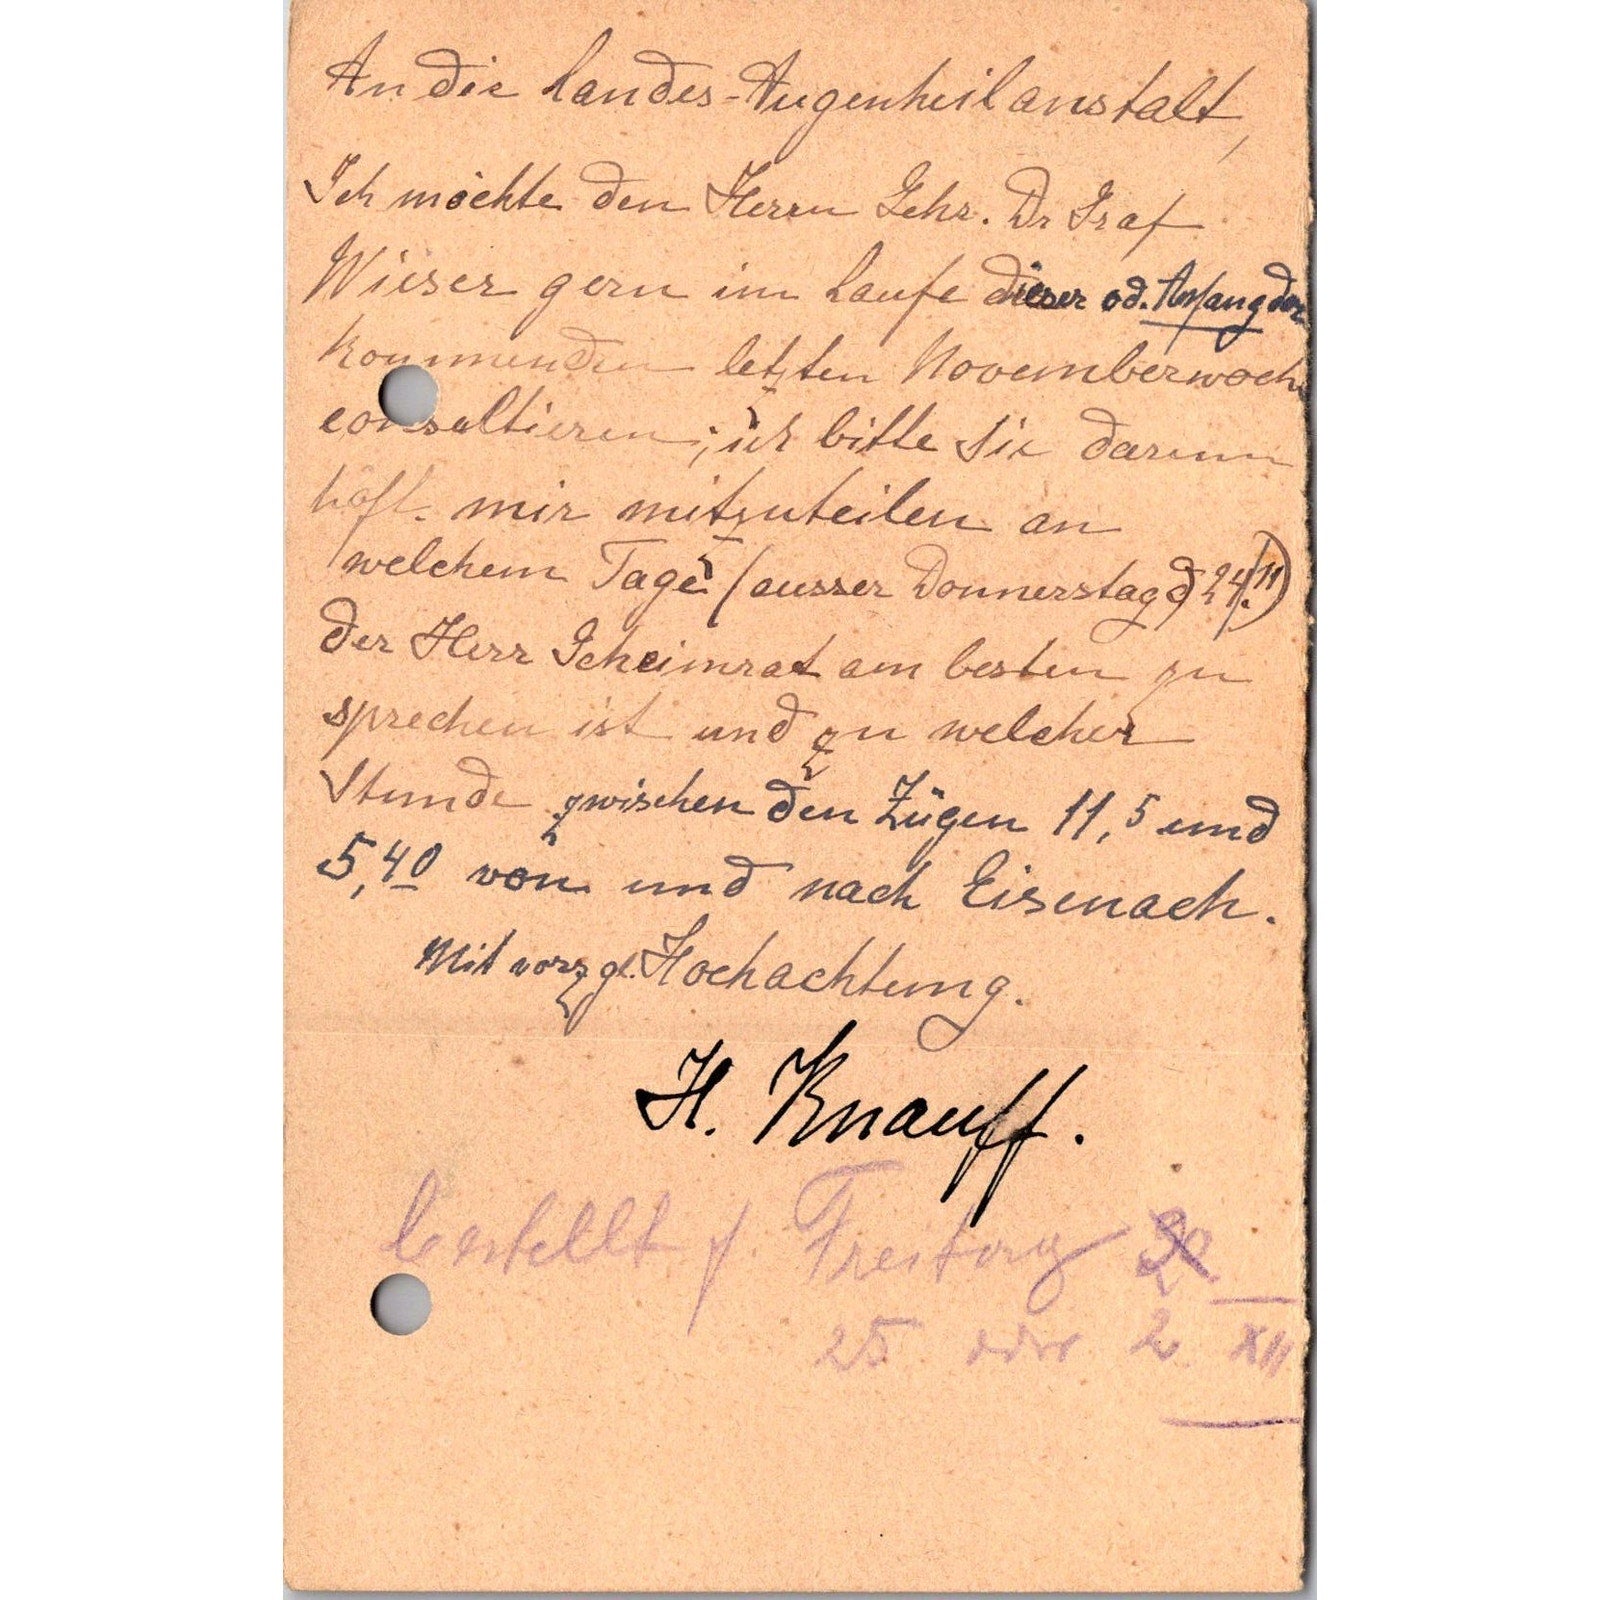 An die Landes-Augenheilanstalt,
Ich möchte den Herrn Gehr. Dr Graf
Wieser gern im Laufe dieser od. Anfang der
kommenden letzten Novemberwoche
consultieren; ich bitte Sie darum
höfl. mir mitzuteilen an
welchem Tage (ausser Donnerstag d 24/11)
der Herr Geheimrat am besten zu
sprechen ist und zu welcher
Stunde zwischen den Zügen 11,5 und
5,40 von und nach Eisenach.
Mit vorzgl. Hochachtung.
H. Knauff.
bestellt f. Freitag
25 oder 2. XII